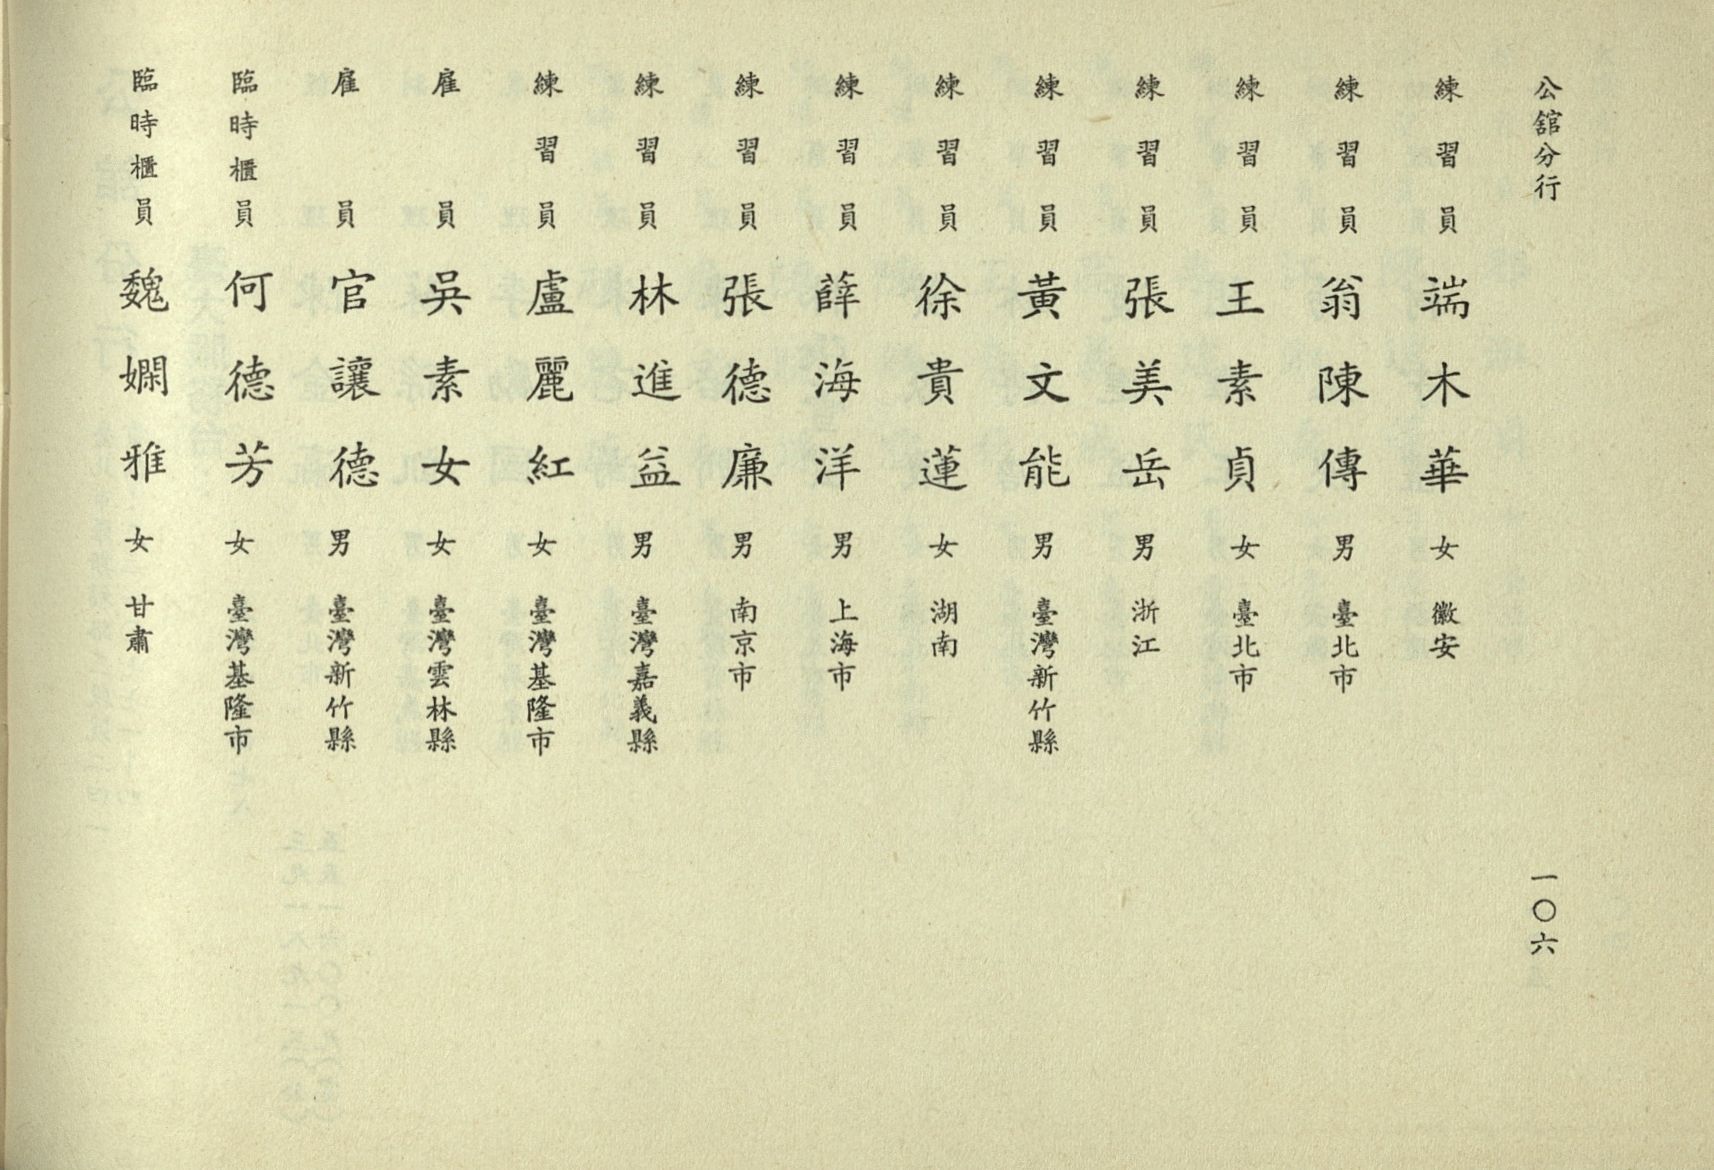 公舘分行 一〇六
練習員 端木華 女 徽安
練習員 翁陳傳 男 臺北市
練習員 王素貞 女 臺北市
練習員 張美岳 男 浙江
練習員 黃文能 男 臺灣新竹縣
練習員 徐貴蓮 女 湖南
練習員 薛海洋 男 上海市
練習員 張德廉 男 南京市
練習員 林進益 男 臺灣嘉義縣
練習員 盧麗紅 女 臺灣基隆市
雇員 吳素女 女 臺灣雲林縣
雇員 官讓德 男 臺灣新竹縣
臨時櫃員 何德芳 女 臺灣基隆市
臨時櫃員 魏嫻雅 女 甘肅